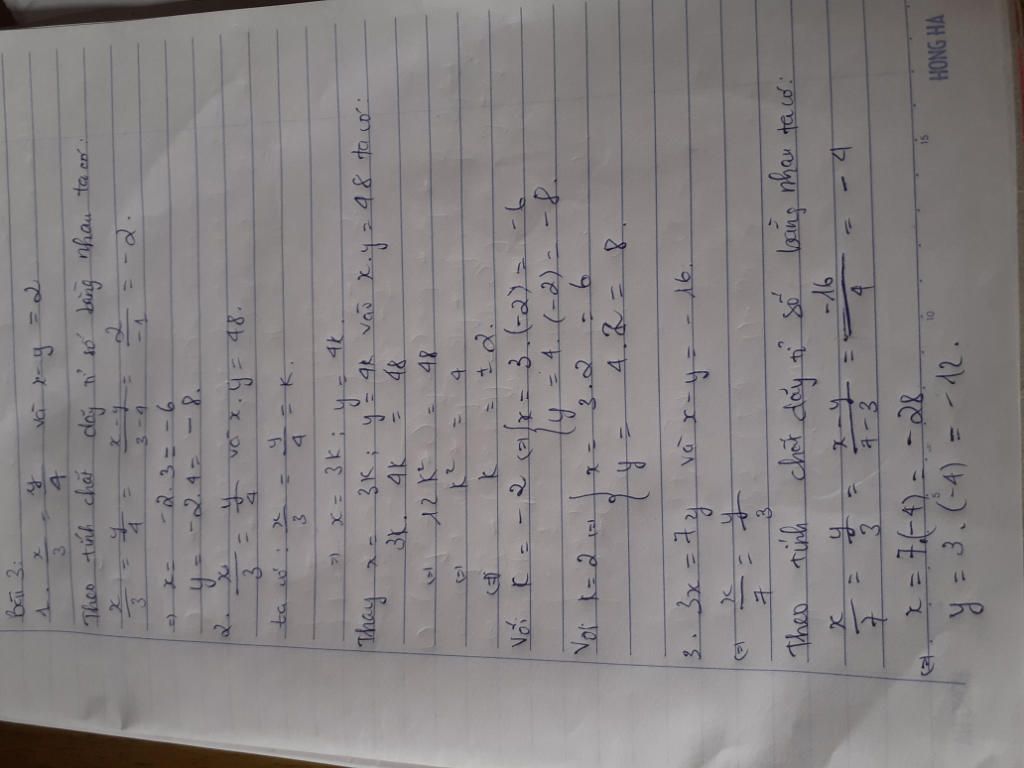 Bài 3:
1. x/3 = y/4 và x-y = 2
Theo tính chất dãy tỉ số bằng nhau ta có:
x/3 = y/4 = x-y/3-4 = 2/-1 = -2.
=> x = -2.3 = -6
y = -2.4 = -8.
2. x/3 = y/4 và x.y = 48.
ta có: x/3 = y/4 = k.
=> x = 3k; y = 4k.
Thay x = 3k; y = 4k vào x.y = 48 ta có:
3k. 4k = 48
(=) 12k² = 48
(=) k² = 4
(=) k = ±2.
Với k = -2 (=) { x = 3.(-2) = -6
{ y = 4.(-2) = -8.
Với k = 2 (=) { x = 3.2 = 6
{ y = 4.2 = 8.
3. 3x = 7y và x-y = -16.
(=) x/7 = y/3
Theo tính chất dãy tỉ số bằng nhau ta có:
x/7 = y/3 = x-y/7-3 = -16/4 = -4
(=) x = 7.(-4) = -28
y = 3.(-4) = -12.
5 10 15
HONG HA